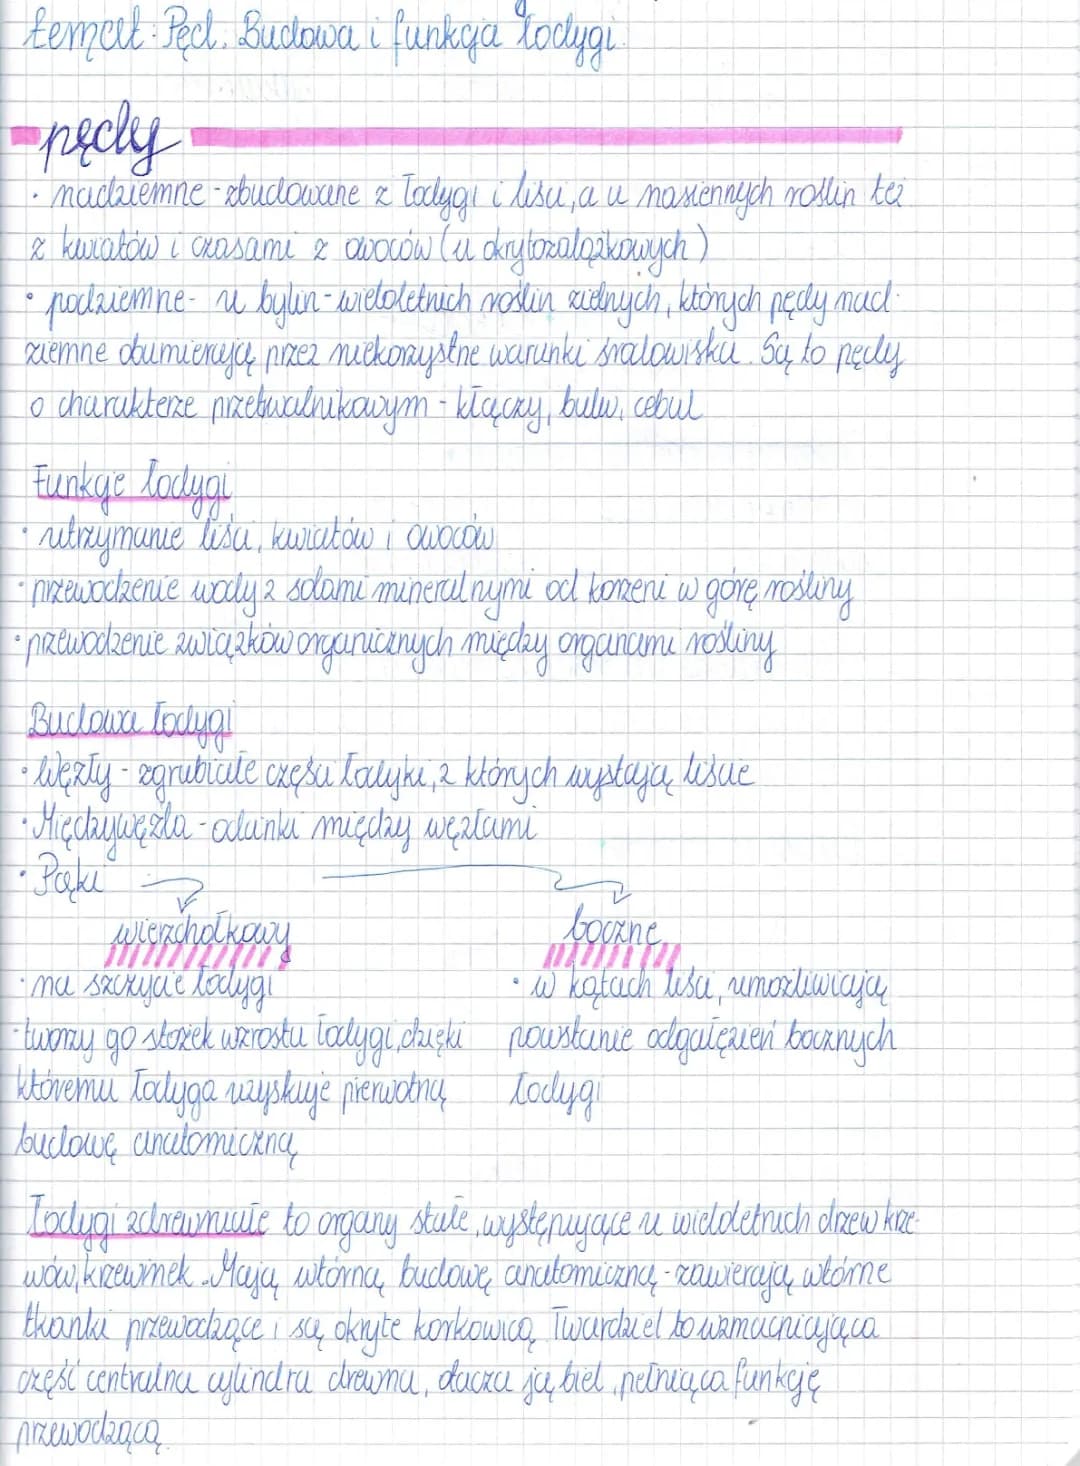 temat: Pęd. Budowa i funkcja łodygi.
pędy
· nadziemne - zbudowane z łodygi i liści, a u nasiennych roślin też
z kwiatów i czasami z owoców (u okrytozalążkowych)
· podziemne - u bylin - wieloletnich roślin zielnych, których pędy nad-
ziemne obumierają przez niekorzystne warunki środowiska. Są to pędy
o charakterze przetrwalnikowym - kłączy, bulw, cebul
Funkcje łodygi
· utrzymanie liści, kwiatów i owoców
· przewodzenie wody z solami mineralnymi od korzeni w górę rośliny
· przewodzenie związków organicznych między organami rośliny
Budowa łodygi
· Węzły - zgrubiałe części łodyki, z których wystają liście
· Międzywęźla - odcinki między węzłami
· Pąki
wierzchołkowy boczne
· na szczycie łodygi · w kątach liści, umożliwiają
· tworzy go stożek wzrostu łodygi, dzięki powstanie odgałęzień bocznych
któremu łodyga uzyskuje pierwotną łodygi
budowę anatomiczną
Łodygi zdrewniałe to organy stałe, występujące u wieloletnich drzew krze-
wów, krzewinek. Mają wtórną budowę anatomiczną - zawierają wtórne
tkanki przewodzące i są okryte korkowicą. Twardziel to wzmacniająca
część centralna cylindra drewna, otacza ją biel, pełniąca funkcję
przewodzącą.